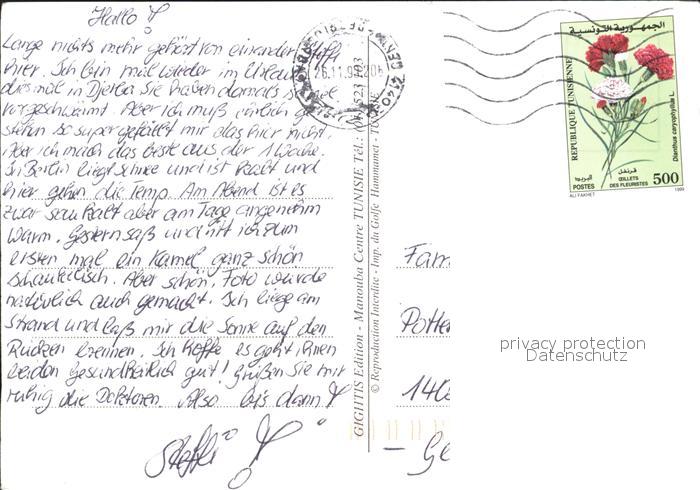 Hallo!
Lange nichts mehr gehört von einander. Steffi
hier. Ich bin mal wieder im Urlaub
diesmal in Djerba Sie haben damals so viel
vorgeschwärmt. Aber ich muß ehrlich ge-
stehen so super gefällt mir das hier nicht.
Aber ich mach das beste aus der 1 Woche.
In Berlin liegt Schnee und ist kalt und
hier gehen die Temp. Am Abend ist es
zwar sau kalt aber am Tage angenehm
warm. Gestern saß und ritt ich zum
ersten mal ein Kamel ganz schön
schaukelisch. Aber schön. Foto wurde
natürlich auch gemacht. Ich liege am
Strand und laß mir die Sonne auf den
Rücken brennen. Ich hoffe es geht ihnen
beiden Gesundheitlich gut! Grüßen Sie mir
ruhig die Doktoren. Also bis dann!
Steffi!
GIGHTIS Edition - Manouba Centre TUNISIE Tél.: 523 103
© Reproduction Interdite - Imp. du Golfe Hammamet - TUNISIE
26.11.99
الجمهورية التونسية
REPUBLIQUE TUNISIENNE
Dianthus caryophyllus L.
قرنفل
البريد
ŒILLETS
DES FLEURISTES
POSTES
500
ALI FAKHET
1999
Fam
Potte
140
- Ge
privacy protection
Datenschutz